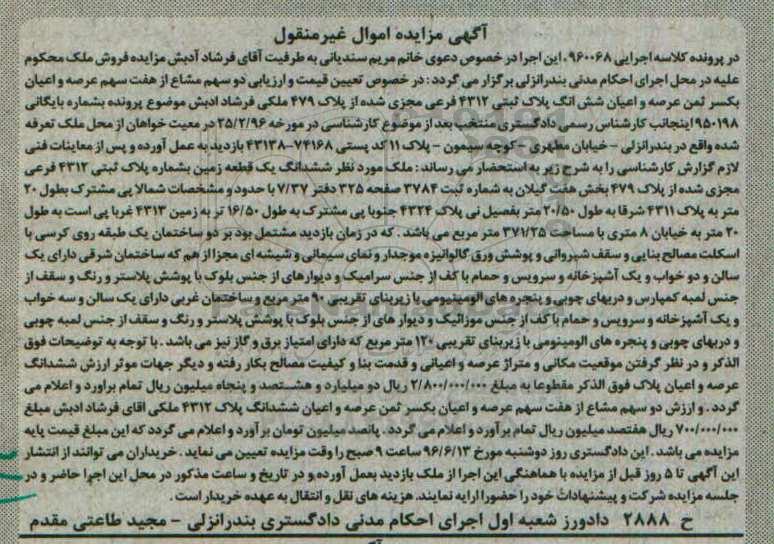 آگهی مزایده اموال غیرمنقول
در پرونده کلاسه اجرایی ۹۶۰۰۶۸، این اجرا در خصوص دعوی خانم مریم سندیانی به طرفیت آقای فرشاد آدبش مزایده فروش ملک محکوم
علیه در محل اجرای احکام مدنی بندرانزلی برگزار می گردد: در خصوص تعیین قیمت و ارزیابی دو سهم مشاع از هفت سهم عرصه و اعیان
بکسر ثمن عرصه و اعیان شش انگ پلاک ثبتی ۴۳۱۲ فرعی مجزی شده از پلاک ۴۷۹ ملکی فرشاد ادبش موضوع پرونده بشماره بایگانی
۹۵۰۱۹۸ اینجانب کارشناس رسمی دادگستری منتخب بعد از موضوع کارشناسی در مورخه ۲۵/۲/۹۶ در معیت خواهان از محل ملک تعرفه
شده واقع در بندرانزلی - خیابان مطهری - کوچه سیمون - پلاک ۱۱ کد پستی ۷۴۱۶۸-۴۳۱۳۸ بازدید به عمل آورده و پس از معاینات فنی
لازم گزارش کارشناسی را به شرح زیر به استحضار می رساند: ملک مورد نظر ششدانگ یک قطعه زمین بشماره پلاک ثبتی ۴۳۱۲ فرعی
مجزی شده از پلاک ۴۷۹ بخش هفت گیلان به شماره ثبت ۳۷۸۴ صفحه ۳۲۵ دفتر ۷/۳۷ با حدود و مشخصات شمالا پی مشترک بطول ۲۰
متر به پلاک ۴۳۱۱ شرقا به طول ۲۰/۵۰ متر بفصیل نی پلاک ۴۳۲۴ جنوبا پی مشترک به طول ۱۶/۵۰ تر به زمین ۴۳۱۳ غربا پی است به طول
۲۰ متر به خیابان ۸ متری با مساحت ۳۷۱/۲۵ متر مربع می باشد. که در زمان بازدید مشتمل بود بر دو ساختمان یک طبقه روی کرسی با
اسکلت مصالح بنایی و سقف شیروانی و پوشش ورق گالوانیزه موجدار و نمای سیمانی و شیشه ای مجزا از هم که ساختمان شرقی دارای یک
سالن و دو خواب و یک آشپزخانه و سرویس و حمام با کف از جنس سرامیک و دیوارهای از جنس بلوک با پوشش پلاستر و رنگ و سقف از
جنس لمبه کمپارس و دربهای چوبی و پنجره های الومینیومی با زیربنای تقریبی ۹۰ متر مربع و ساختمان غربی دارای یک سالن و سه خواب
و یک آشپزخانه و سرویس و حمام با کف از جنس موزائیک و دیوار های از جنس بلوک با پوشش پلاستر و رنگ و سقف از جنس لمبه چوبی
و دربهای چوبی و پنجره های الومینومی با زیربنای تقریبی ۱۲۰ متر مربع که دارای امتیاز برق و گاز نیز می باشد. با توجه به توضیحات فوق
الذکر و در نظر گرفتن موقعیت مکانی و متراژ عرصه و اعیانی و قدمت بنا و کیفیت مصالح بکار رفته و دیگر جهات موثر ارزش ششدانگ
عرصه و اعیان پلاک فوق الذکر مقطوعا به مبلغ ۲/۸۰۰/۰۰۰/۰۰۰ ریال دو میلیارد و هشتصد و پنجاه میلیون ریال تمام براورد و اعلام می
گردد. و ارزش دو سهم مشاع از هفت سهم عرصه و اعیان بکسر ثمن عرصه و اعیان ششدانگ پلاک ۴۳۱۲ ملکی اقای فرشاد ادبش مبلغ
۷۰۰/۰۰۰/۰۰۰ ریال هفتصد میلیون ریال تمام برآورد و اعلام می گردد. پانصد میلیون تومان برآورد و اعلام می گردد که این مبلغ قیمت پایه
مزایده می باشد. این دادگستری روز دوشنبه مورخ ۹۶/۶/۱۳ ساعت ۹ صبح را وقت مزایده تعیین می نماید. خریداران می توانند از انتشار
این آگهی تا ۵ روز قبل از مزایده با هماهنگی این اجرا از ملک بازدید بعمل آورده و در تاریخ و ساعت مذکور در محل این اجرا حاضر و در
جلسه مزایده شرکت و پیشنهادات خود را حضورا ارایه نمایند. هزینه های نقل و انتقال به عهده خریدار است.
ح ۲۸۸۸ دادورز شعبه اول اجرای احکام مدنی دادگستری بندرانزلی - مجید طاعتی مقدم